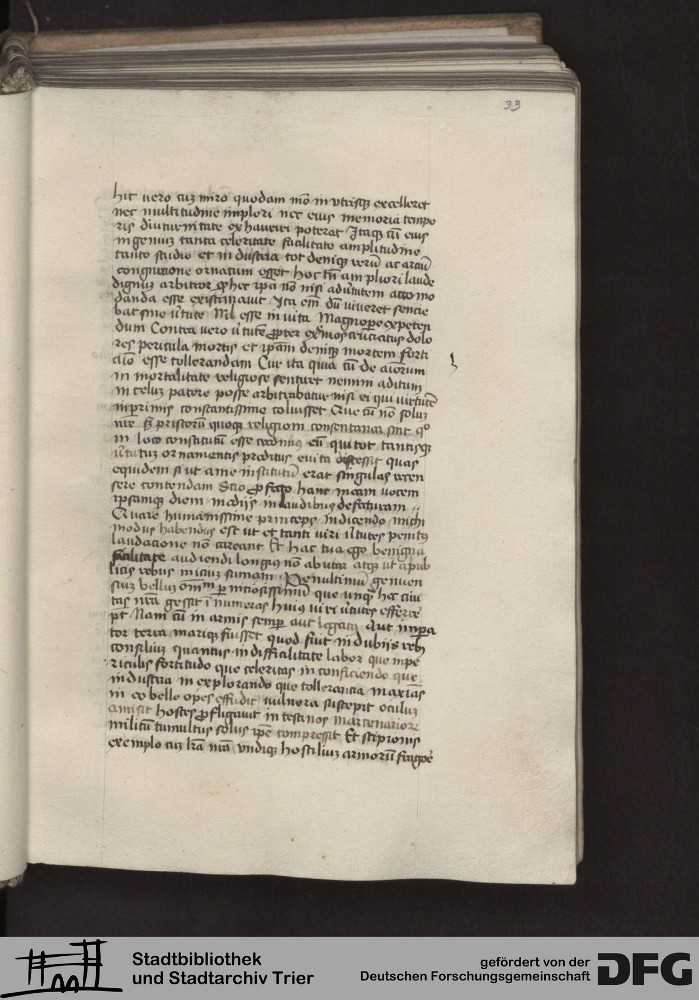 33
hic vero cuz miro quodam mō in vtrisqꝫ excelleret
nec multitudine impleri nec eius memoria tempo
ris diuturnitate exhauriri poterat Itaqꝫ cū eius
ingenium tanta celeritate facilitate amplitudine
tanto studio et industria tot deniqꝫ rerū ac artiū
cognitione ornatum esset hoc tn̄ ampliori laude
dignus arbitror ꝙ hec ip̄a nō nisi ad v̄tutem accōmo
danda esse existimauit Ita em̄ dū viveret sencie
bat sine v̄tute Nil esse in vita Magnopere expeten
dum Contra vero v̄tutē ꝓpter extremos cruciatus dolo
res pericula mortis et ip̄am deniqꝫ mortem forti
aīo esse tollerandam Cur ita quia cū de aīorum
in mortalitate religiose sentiret nemini aditum
in celuꝫ patere posse arbitrabatur nisi ei qui virtutē
inprimis constantissime coluisset Que cū nō soluꝫ
vite sꝫ priscorū quoqꝫ religioni consentanea sint qͦ
in loco constitutū esse credimꝰ eū qui tot tantisqꝫ
v̄tutuꝫ ornamentis preditus e vita discessit quas
equidem si ut a me institutū erat singulas recen
sere contendam Scio ꝓfecto hanc meam vocem
ipsamqꝫ diem medijs in laudibus defecturam
Quare humanissime princeps in dicendo michi
modus habendus est ut et tanti viri v̄tutes penitꝰ
laudacione nō careant Et hac tua ergo benigna
facilitate audiendi longius nō abutar atqꝫ ut a pub
licis rebus inicium sumam Penultimū genuen
siuꝫ belluꝫ omniū perniciosissimū que unqꝫ hec ciui
tas nr̄a gessit innumeras huiꝰ viri v̄tutes efferre
pt̄ Nam cū in armis semꝑ aut legatꝰ Aut impera
tor terra mariqꝫ fuisset quod fuit in dubijs rebꝰ
consiliuꝫ quantus in difficilitate labor que in pe
riculis fortitudo que celeritas in conficiendo que
industria in explorando que tollerantia maximas
in eo bello opes effudit vulnera suscepit oculuꝫ
amisit hostes ꝓfligauit intestinos mercenarioꝝ
militū tumultus solus ip̄e compressit Et scipionis
exemplo cuꝫ trā nr̄a vndiqꝫ hostiliuꝫ armorū fragore
Stadtbibliothek
und Stadtarchiv Trier
gefördert von der
Deutschen Forschungsgemeinschaft
DFG